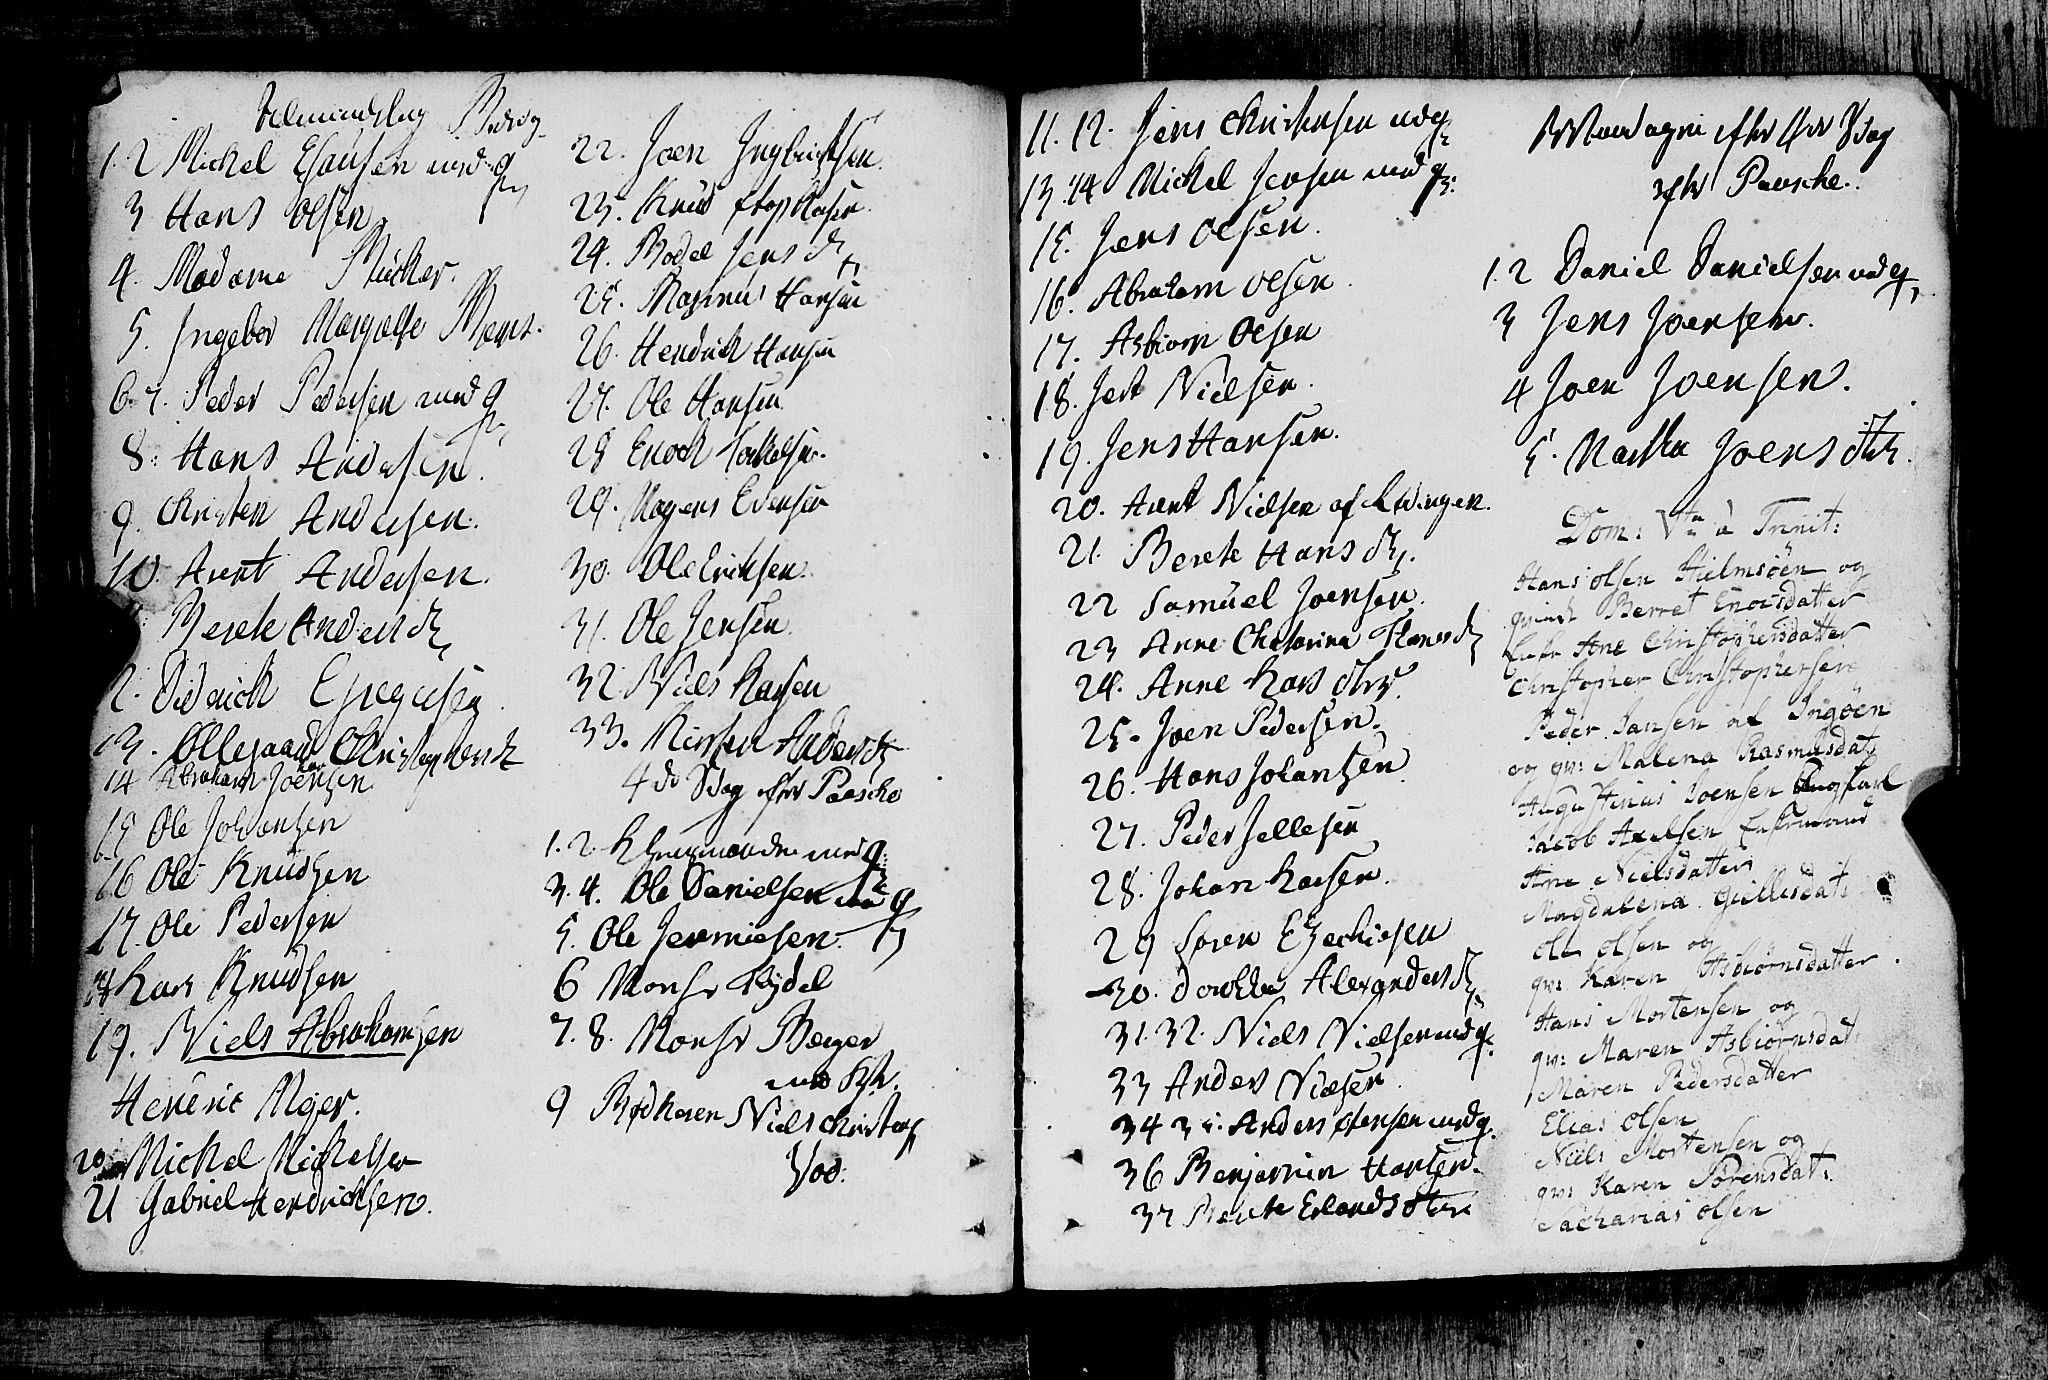 1. 2 Mickel Esaiisen med q
3 Hans Olsen
4. Madame
5. Ingebor
6. 7. Peder Pedersen med q
8. Hans Andersen.
9. Christen Andersen.
10. Arent Andersen.
Berete Andersd
2. Diderick Gregusen
13. Ollegaard Christophersd
14 Abraham Joensen
15 Ole Johansen
16 Ole Knudsen
17. Ole Pedersen
18 Lars Knudsen
19. Niels Abrahamsen
Henric Mejer.
20 Mickel Mickelsen
21 Gabriel Hendricksen.
22. Joen Ingbrictsen.
23. Knud
24. Bodel Jensd
25. Rasmus Hansen
26. Hendrick Hansen
27. Ole Hansen
28 Enock
29. Mogens Evensen
30. Ole Ericksen.
31. Ole Jensen
32 Niels Larsen
33. Kirsten Andersd
4de Sdag efter Paaske
1. 2. med q:
3. 4. Ole Danielsen med q
5. Ole Jermiesen.
6 Monsr Kydel
7. 8. Monsr Berger
med
9 Niels Christoph
11. 12. Jens Christensen med q
13. 14 Mickel Jensen med q:
15. Jens Olsen.
16. Abraham Olsen.
17. Asbiørn Olsen
18. Nielsen.
19. Jens Hansen.
20. Arent Nielsen af
21. Berete Hansd.
22 Samuel Joensen.
23 Anne Chatarina Hansd
24. Anne Larsdtr.
25. Joen Pedersen.
26. Hans Johansen
27. Peder Jellesen
28. Johan Larsen.
29 Søren Ezechiesen
30. Dorthe Alexandersd.
31. 32. Niels Nielsen med q.
33 Anders Nielsen
34 35. Anders med q.
36 Benjamin Hansen.
37 Berete Erlandsdtr
efter 4de Sdag
efter Paasche.
1. 2 Daniel Danielsen med q
3 Jens Joensen.
4 Joen Joensen.
5. Martha Joensdtr.
Dom: Vta à Trinit:
Hans Olsen Hielmsöen og
qvind Berret Enocsdatter
Enke Ane Christophersdatter
Christopher Christophersen
Peder Jansen af Ingöen
og qv: Malena Rasmusdat
Augustinus Joensen Ungkarl
Jacob Axelsen Enkemand
Ane Nielsdatter
Magdalena Giellesdat:
Ole Olsen og
qv: Karen Asbiörnsdatter.
Hans Mortensen og
qv: Maren Asbiörnsdat
Maren Pedersdatter
Elias Olsen
Niels Mortensen og
qv: Karen Sörensdat:
Sacharias Olsen